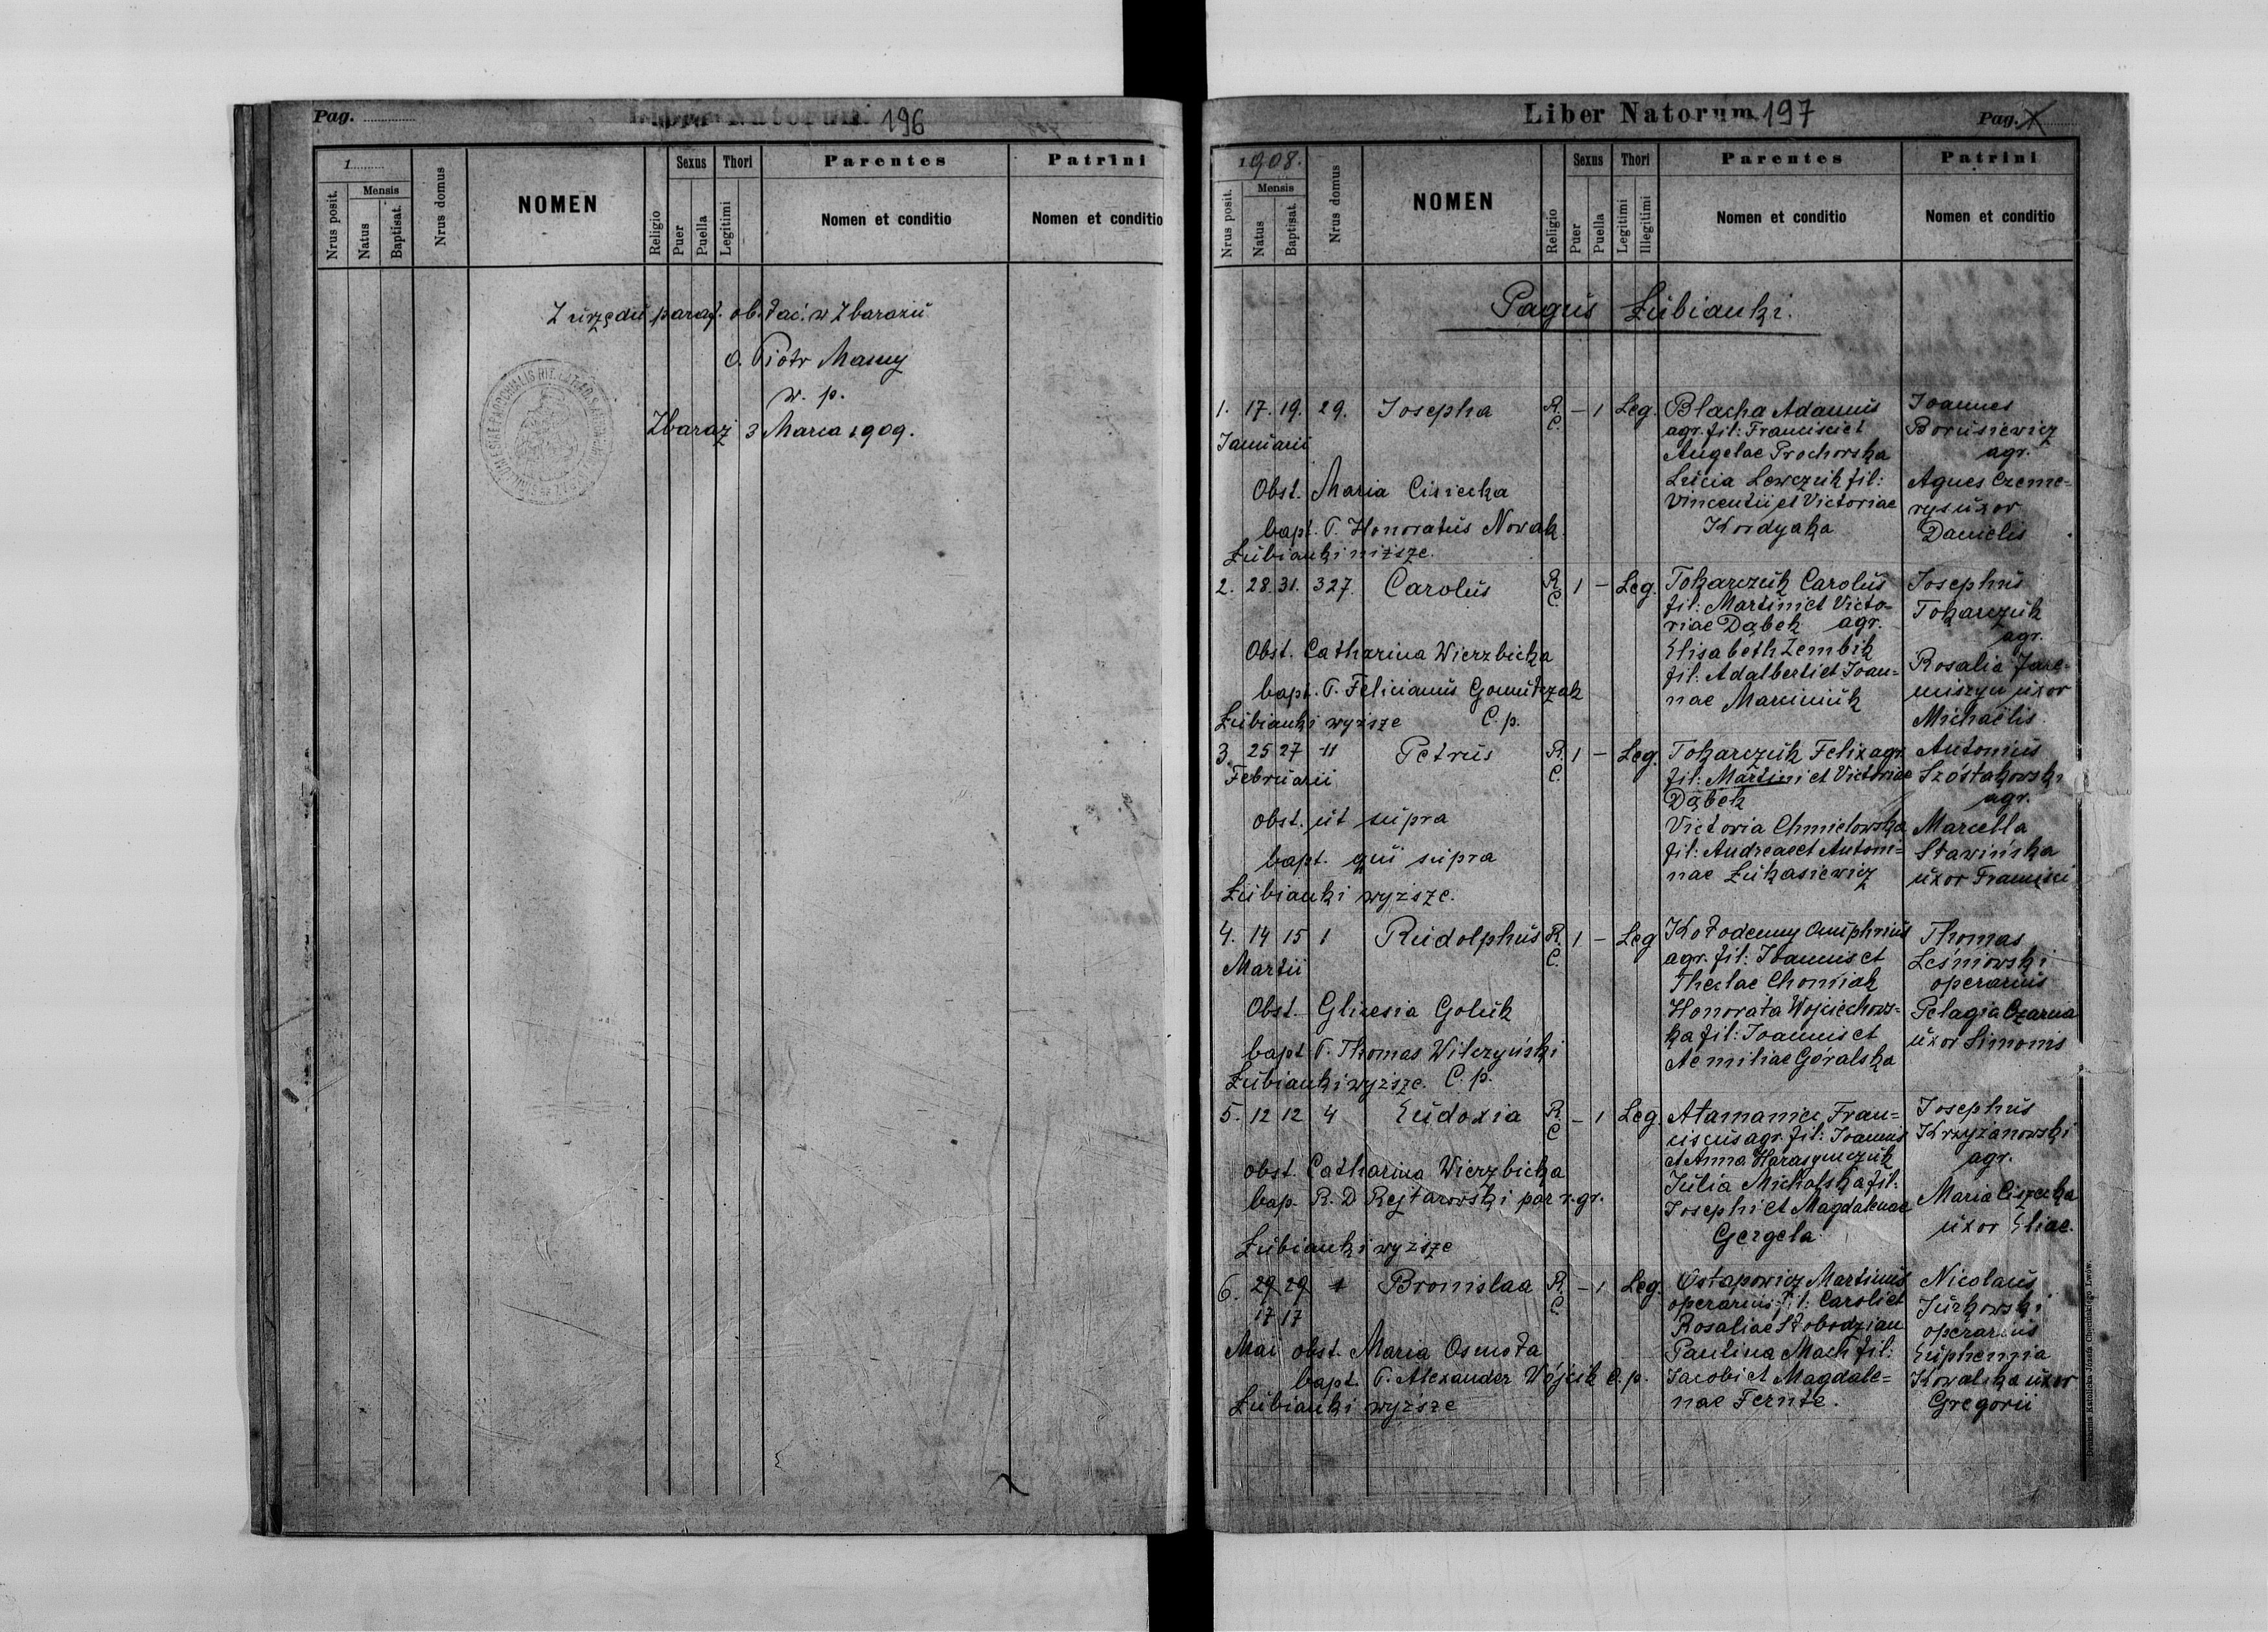 Pag.
Liber Natorum 196
1
Nrus posit.
Mensis
Natus
Baptisat.
Nrus domus
NOMEN
Religio
Sexus
Puer
Puella
Thori
Legitimi
Parentes
Nomen et conditio
Patrini
Nomen et conditio
Z urzędu paraf. ob. łać. w Zbarażu
O. Piotr
w. p.
Zbaraż 3 Marca 1909.
Liber Natorum 197
Pag. 1
1908.
Nrus posit.
Mensis
Natus
Baptisat.
Nrus domus
NOMEN
Religio
Sexus
Puer
Puella
Thori
Legitimi
Illegitimi
Parentes
Nomen et conditio
Patrini
Nomen et conditio
Pagus Łubianki.
1. 17. 19. 29. Josepha R. C. – 1 Leg.
Januarii
Obst. Maria Cisiecka
bapt. P. Honoratus Nowak
Łubianki niższe.
Blacha Adamus
agr. fil: Francisci et
Angelae Prochorska
Lucia Lewczuk fil:
Vincentii et Victoriae
Kordyaka
Joannes
Borusiewicz
agr.
Agnes Czeme=
rys uxor
Danielis
2. 28. 31. 327. Carolus R. C. 1 – Leg.
Obst. Catharina Wierzbicka
bapt. P. Felicianus
Łubianki wyższe C. p.
Tokarczuk Carolus
fil: Martini et Victo-
riae Dąbek agr.
Elisabeth Zembik
fil: Adalberti et Joan=
nae Marciniuk
Josephus
Tokarczuk
agr.
Rosalia Jare-
miszyn uxor
Michaëlis
3. 25 27 11 Petrus R. C. 1 – Leg.
Februarii
obst. ut supra
bapt. qui supra
Łubianki wyższe.
Tokarczuk Felix agr.
fil: Martini et Victoriae
Dąbek
Victoria Chmielowska
fil: Andreae et Antoni=
nae Łukasiewicz
Antonius
Szóstakowski
agr.
Marcella
Sławińska
uxor Francisci
4. 14 15 1 Rudolphus R. C. 1 – Leg
Martii
Obst. Glicesia Goluk
bapt P. Thomas Wilczyński
Łubianki wyższe. C. p.
Kołodenny Onuphrius
agr. fil: Joannis et
Theclae Chomiak
Honorata Wojciechows=
ka fil: Joannis et
Aemiliae Góralska
Thomas
Leśniowski
operarius
Pelagia Czarna
uxor Simonis
5. 12 12 4 Eudoxia R. C – 1 Leg.
obst. Catharina Wierzbicka
bap. R. D Rejtarowski par r. gr.
Łubianki wyższe
Atamaniec Fran=
ciscus agr. fil: Joannis
et Anna Harasymczuk
Julia Michalska fil:
Josephi et Magdalenae
Gergela
Josephus
Krzyżanowski
agr.
Maria Ciszecka
uxor Eliae.
6. 29 29 1 Bronislaa R. C. – 1 Leg.
17 17
Mai obst. Maria Osmoła
bapt. P. Alexander Wójcik C. p.
Łubianki wyższe
Ostapowicz Martinus
operarius fil: Caroli et
Rosaliae Słobodzian
Paulina Mach fil:
Jacobi et Magdale=
nae Fernte.
Nicolaus
Jurkowski
operarius
Euphemia
Kowalska uxor
Gregorii
Drukarnia Katolicka Józefa Chęcińskiego Lwów.